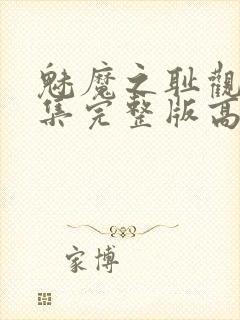 魅魔之耻觀
集完整版高
家博